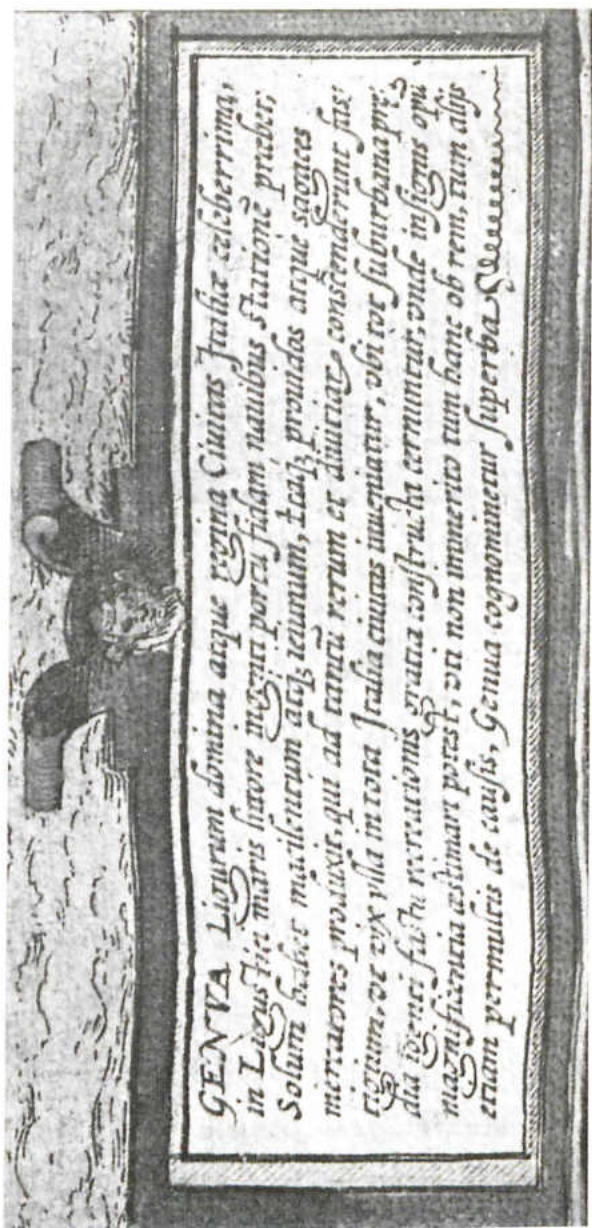 GENVA Ligurum domina atque regina Ciuitas Italiæ celeberrima,
in Ligustici maris littore ingenti portu fidam nauibus stationē præbet;
Solum habet macilentum atqꝫ ieiunum, eaqꝫ prouidos atque sagaces
mercatores produxit, qui ad tantū rerum et diuitiar conscenderunt fas;
tigium, vt vix vlla in tota Italia ciuitas inueniatur, vbi tot suburbana præ;
dia ingenti fastu recreationis gratia constructa cernuntur, vnde insignis opū
magnificentia æstimari potest, vti non immerito tum hanc ob rem, tum alijs
etiam permultis de causis, Genua cognominetur superba